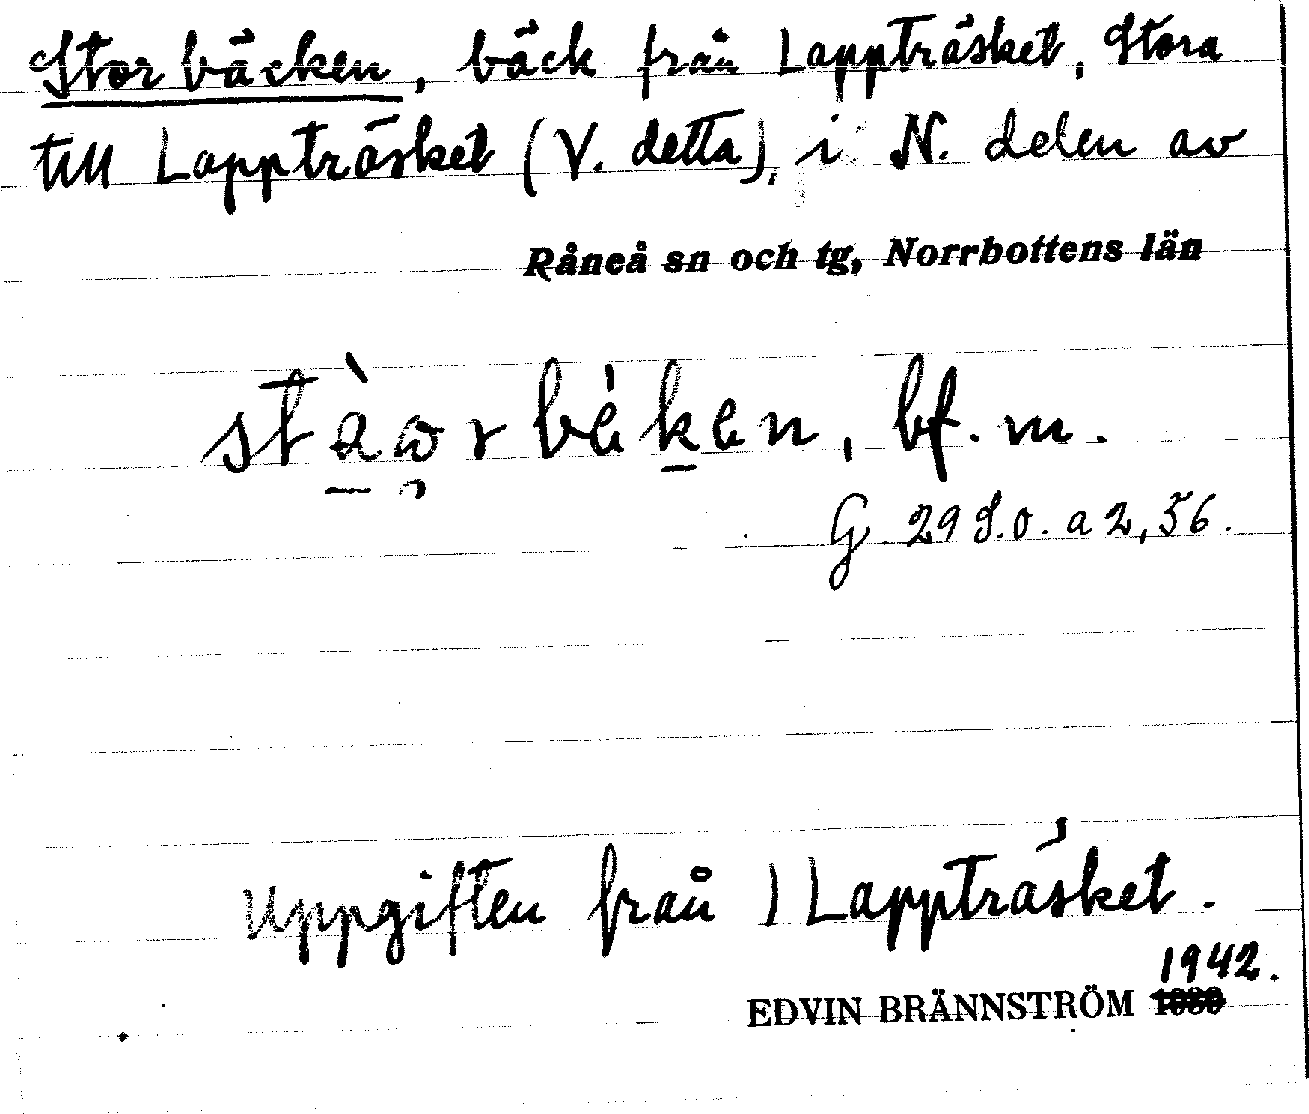 Storbäcken, bäck från Lappträsket, Stora
till Lappträsket (V. detta), i N. delen av
Råneå sn och tg, Norrbottens län
bf. m.
G 29 S.o. a 2, 56.
Uppgiften från 1 Lappträsket.
1942.
EDVIN BRÄNNSTRÖM